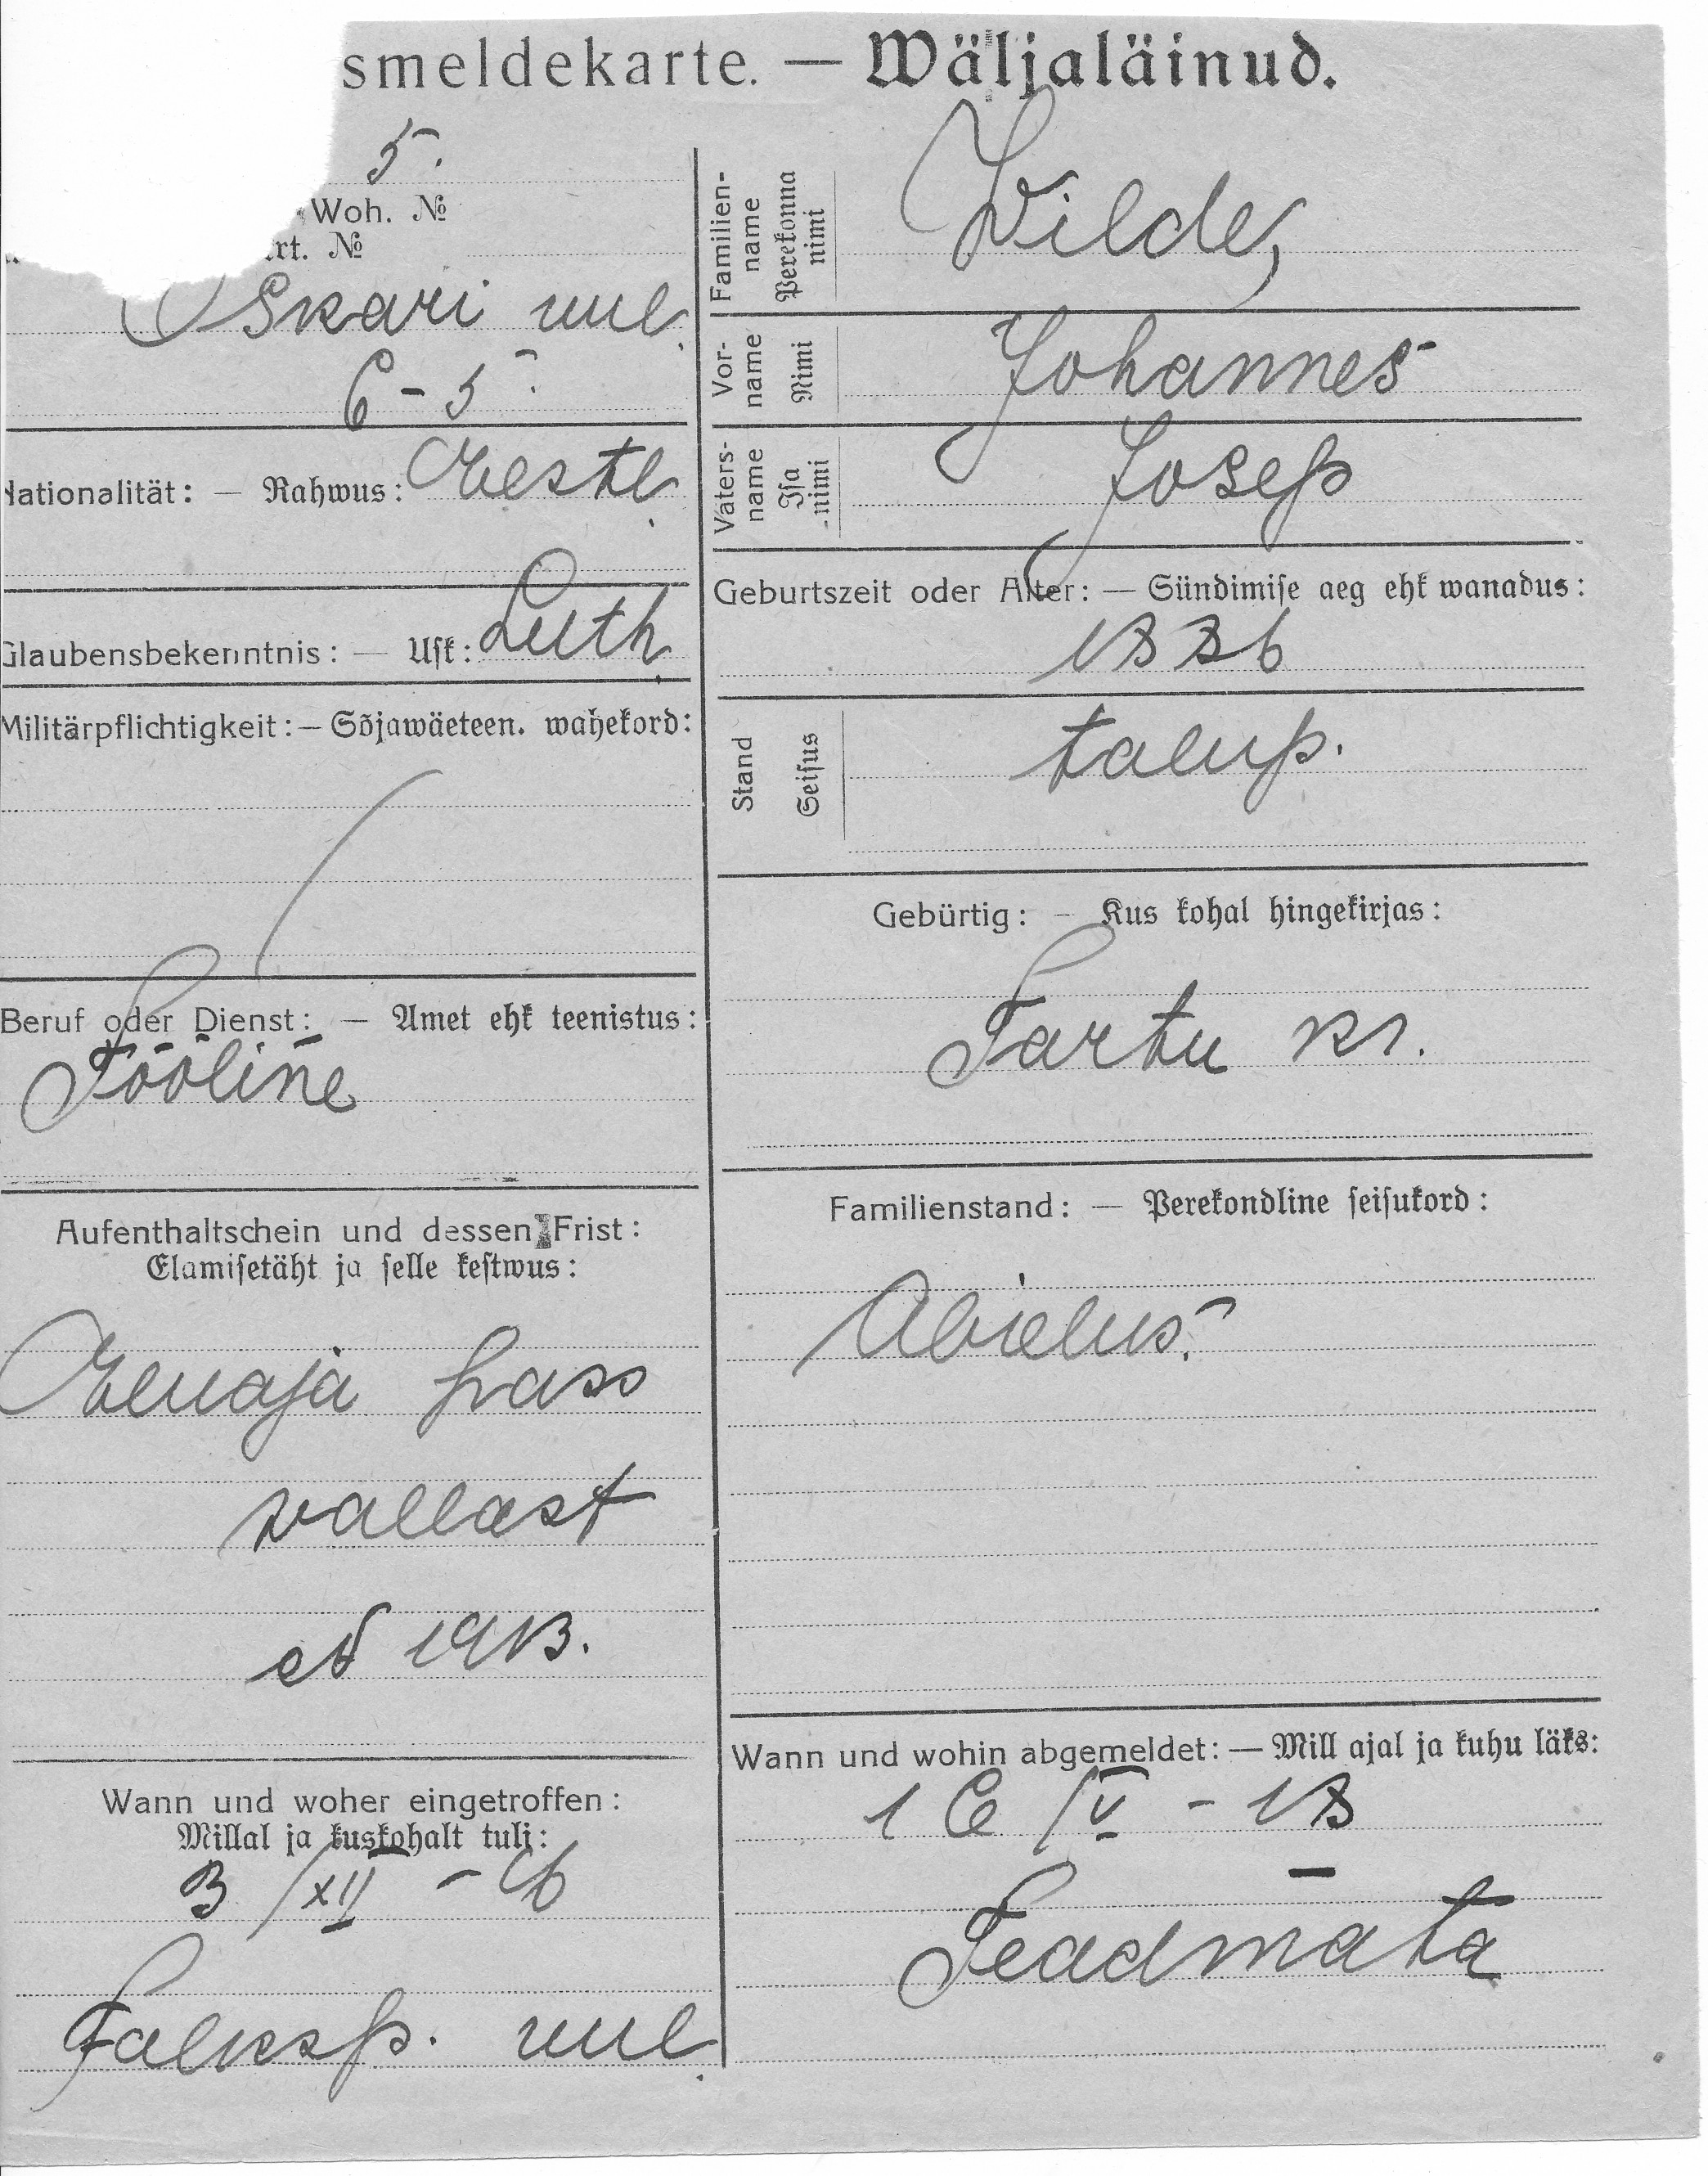 smeldekarte. — Wäljaläinud.
5.
Woh. №
rt. №
Oskari uul.
6 - 5.
Nationalität: — Rahwus: Eestl.
Glaubensbekenntnis: — Usk: Luth.
Militärpflichtigkeit: — Sõjawäeteen. wahekord:
Beruf oder Dienst: — Amet ehk teenistus:
Tööline
Aufenthaltschein und dessen Frist:
Elamisetäht ja selle kestwus:
Eluaja pass
vallast
1913.
Wann und woher eingetroffen:
Millal ja kuskohalt tuli:
3 /XII -
Falksp. uul.
Familien-
name
Perekonna
nimi
Wilde,
Vor-
name
Nimi
Johannes
Vaters-
name
Isa
nimi
Josep
Geburtszeit oder Alter: — Sündimise aeg ehk wanadus:
1886
Stand
Seisus
talup.
Gebürtig: — Kus kohal hingekirjas:
Tartu kr.
Familienstand: — Perekondline seisukord:
Abielus.
Wann und wohin abgemeldet: — Mill ajal ja kuhu läks:
16 /V - 18
Teadmata